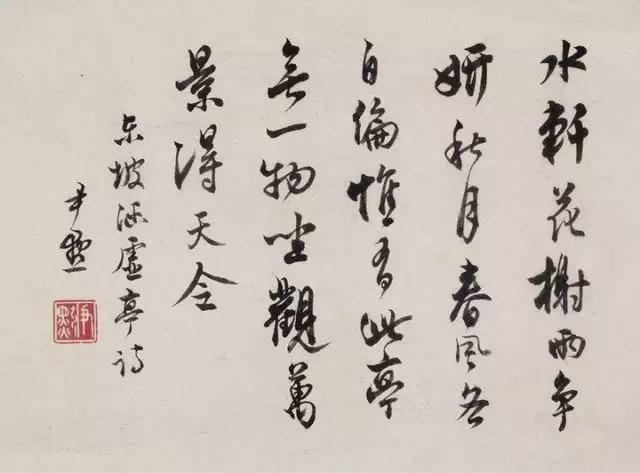 水軒花榭兩争
妍秋月春風各
自偏惟有此亭
無一物坐觀萬
景得天全
東坡涵虛亭詩
尹默
尹默